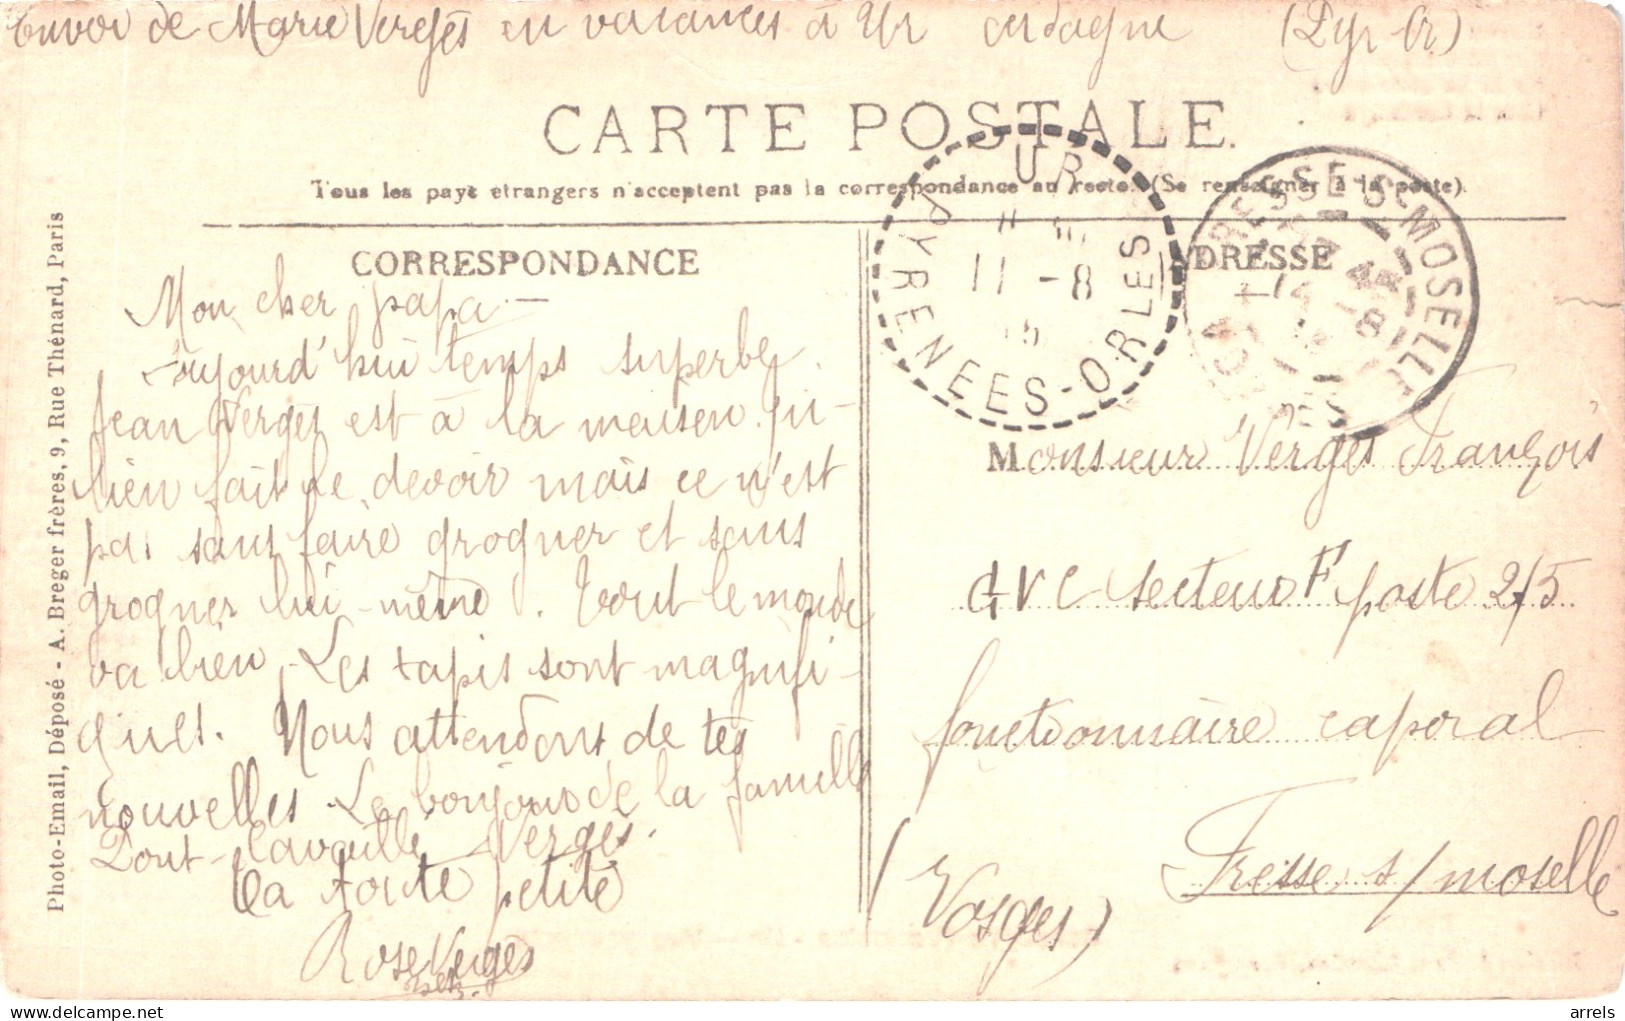 Envoi de Marie Vergès en vacances à Ur cerdagne (Pyr Or)
CARTE POSTALE
Tous les pays etrangers n'acceptent pas la correspondance au recto. (Se renseigner à la poste).
CORRESPONDANCE
Mon cher papa.—
aujourd'hui temps superbe.
Jean Vergès est à la maison. Il
bien fait le devoir mais ce n'est
pas sans faire grogner et sans
grogner lui-même. Tout le monde
va bien. Les tapis sont magnifi-
ques. Nous attendons de tes
nouvelles. Le bonjour de la famille
Pont Vergès.
Ta toute petite
Rose Vergès
ADRESSE
Monsieur Vergès François
GVC secteur F poste 2/5
fonctionnaire caporal
Fresse s/moselle
(Vosges)
UR
11 -8
15
PYRENEES-ORLES
FRESSE-S-MOSELLE
VOSGES
Photo-Email, Déposé - A. Breger frères, 9, Rue Thénard, Paris
arrels